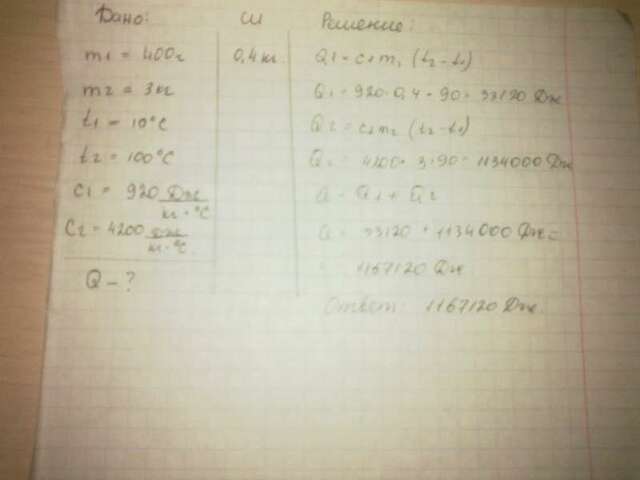 Дано:
m1 = 400г
m2 = 3кг
t1 = 10°C
t2 = 100°C
c1 = 920 Дж/кг·°C
C2 = 4200 Дж/кг·°C
Q - ?
СИ
0,4 кг
Решение:
Q1 = c1m1 (t2-t1)
Q1 = 920·0,4·90 = 33120 Дж
Q2 = c2m2 (t2-t1)
Q2 = 4200·3·90 = 1134000 Дж
Q = Q1 + Q2
Q = 33120 + 1134000 Дж =
= 1167120 Дж
Ответ: 1167120 Дж.